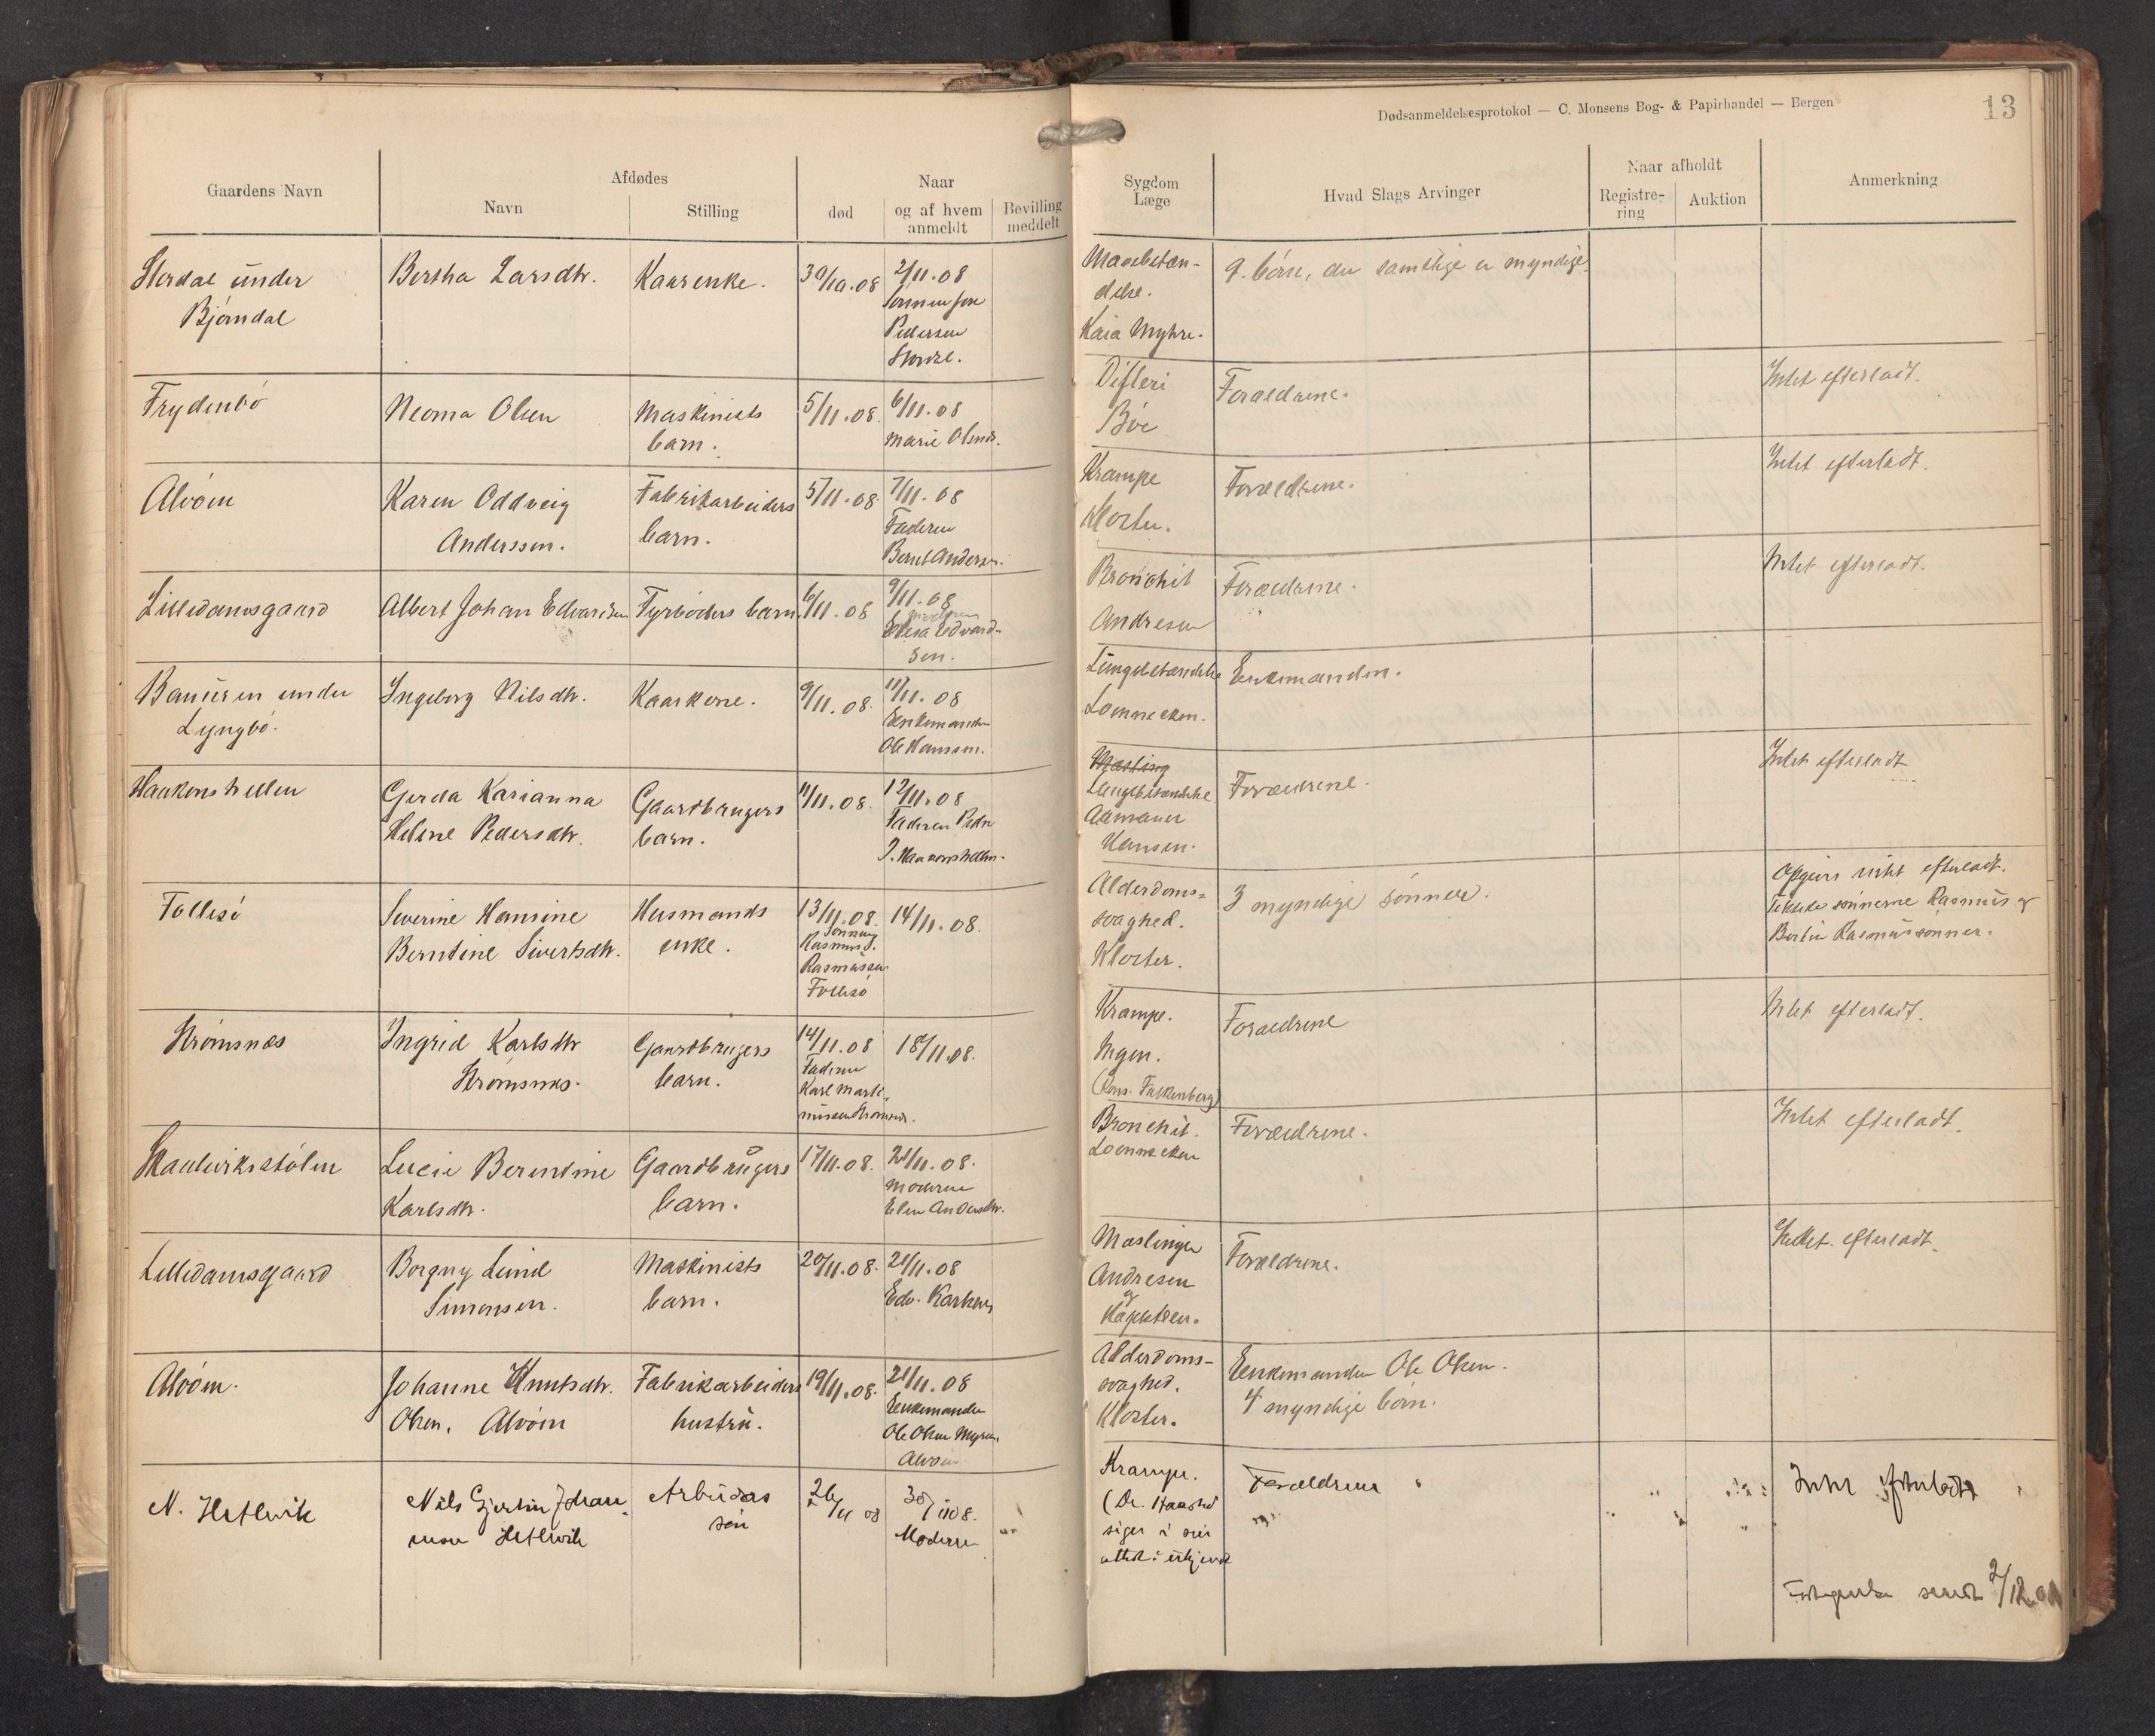 Dødsanmeldelsesprotokol — C. Monsens Bog- & Papirhandel — Bergen
13
Gaardens Navn
Afdødes
Navn
Stilling
Naar
død
og af hvem anmeldt
Bevilling meddelt
Sygdom
Læge
Hvad Slags Arvinger
Naar afholdt
Registre-
ring
Auktion
Anmerkning
Stordal under
Bjørndal
Bertha Larsdtr.
Kaarenke.
30/10.08
2/11.08
Pedersen
Mavebetæn-
delse.
Kaia Myhre.
9. børn, der samtlige er myndige.
Frydenbø
Neoma Olsen
Maskinists
barn.
5/11.08.
6/11.08
Marie Olsen.
Difteri
Böe
Forældrene.
Intet efterladt.
Alvøen
Karen Oddveig
Anderssen.
Fabrikarbeiders
barn.
5/11.08
7/11.08
Faderen
Bernt Anderssen.
Krampe
Kloster.
Forældrene.
Intet efterladt.
Lilledamsgaard
Albert Johan Edvardsen
Fyrbøders barn.
6/11.08
9/11.08
Edvard-
sen.
Bronchit
Andresen
Forældrene.
Intet efterladt.
under
Lyngbø.
Ingeborg Nilsdtr.
Kaarkone.
9/11.08.
11/11.08
Enkemanden
Ole Hanssen.
Lungebetændelse
Loennecken.
Enkemanden.
Haakonshellen
Gerda Karianna
Helene Pedersdtr.
Gaardbrugers
barn.
11/11.08.
12/11.08
Faderen Peder
J. Haakonshellen.
Mæsling
Lungebetændelse
Hansen.
Forældrene.
Intet efterladt
Follesø
Severine Hansine
Berntine Sivertsdtr.
Husmands
enke.
13/11.08.
Sønnen
Rasmus S.
Rasmussen
Follesø
14/11.08.
Alderdoms-
svaghed.
Kloster.
3 myndige sønner.
Opgives intet efterladt.
sønnerne Rasmus og
Rasmussønner.
Strømsnes
Ingrid Karlsdtr
Strømsnes.
Gaardbrugers
barn.
14/11.08
Faderen
Karl Marti-
nussen Strømsnes.
18/11.08.
Krampe.
Ingen.
(Kons. Falkenberg)
Forældrene
Intet efterladt.
Skaalevikstølen
Lucie Berentine
Karlsdtr.
Gaardbrugers
barn.
17/11.08.
21/11.08.
Moderen
Elen Andersdtr.
Bronchit.
Loennecken
Forældrene.
Intet efterladt.
Lilledamsgaard
Borgny Lund
Simonsen.
Maskinists
barn.
20/11.08.
21/11.08
Edv. Karlsen
Mæslinger
Andresen
og
Forældrene.
Intet efterladt.
Alvøen.
Johanne Knutsdtr.
Olsen, Alvøen
Fabrikarbeiders
hustru.
19/11.08.
21/11.08
Enkemanden
Ole Olsen Myren,
Alvøen
Alderdoms-
svaghed.
Kloster.
Enkemanden Ole Olsen.
4 myndige børn.
N. Hetlevik
Nils Gjertin Johan-
nesen Hetlevik
Arbeiders
søn
26/11 08
30/11 08.
Moderen
Krampe.
(Dr. Haasted
siger i sin
attest: ukjendt
Forældrene
Intet efterladt
sendt 2/12.08